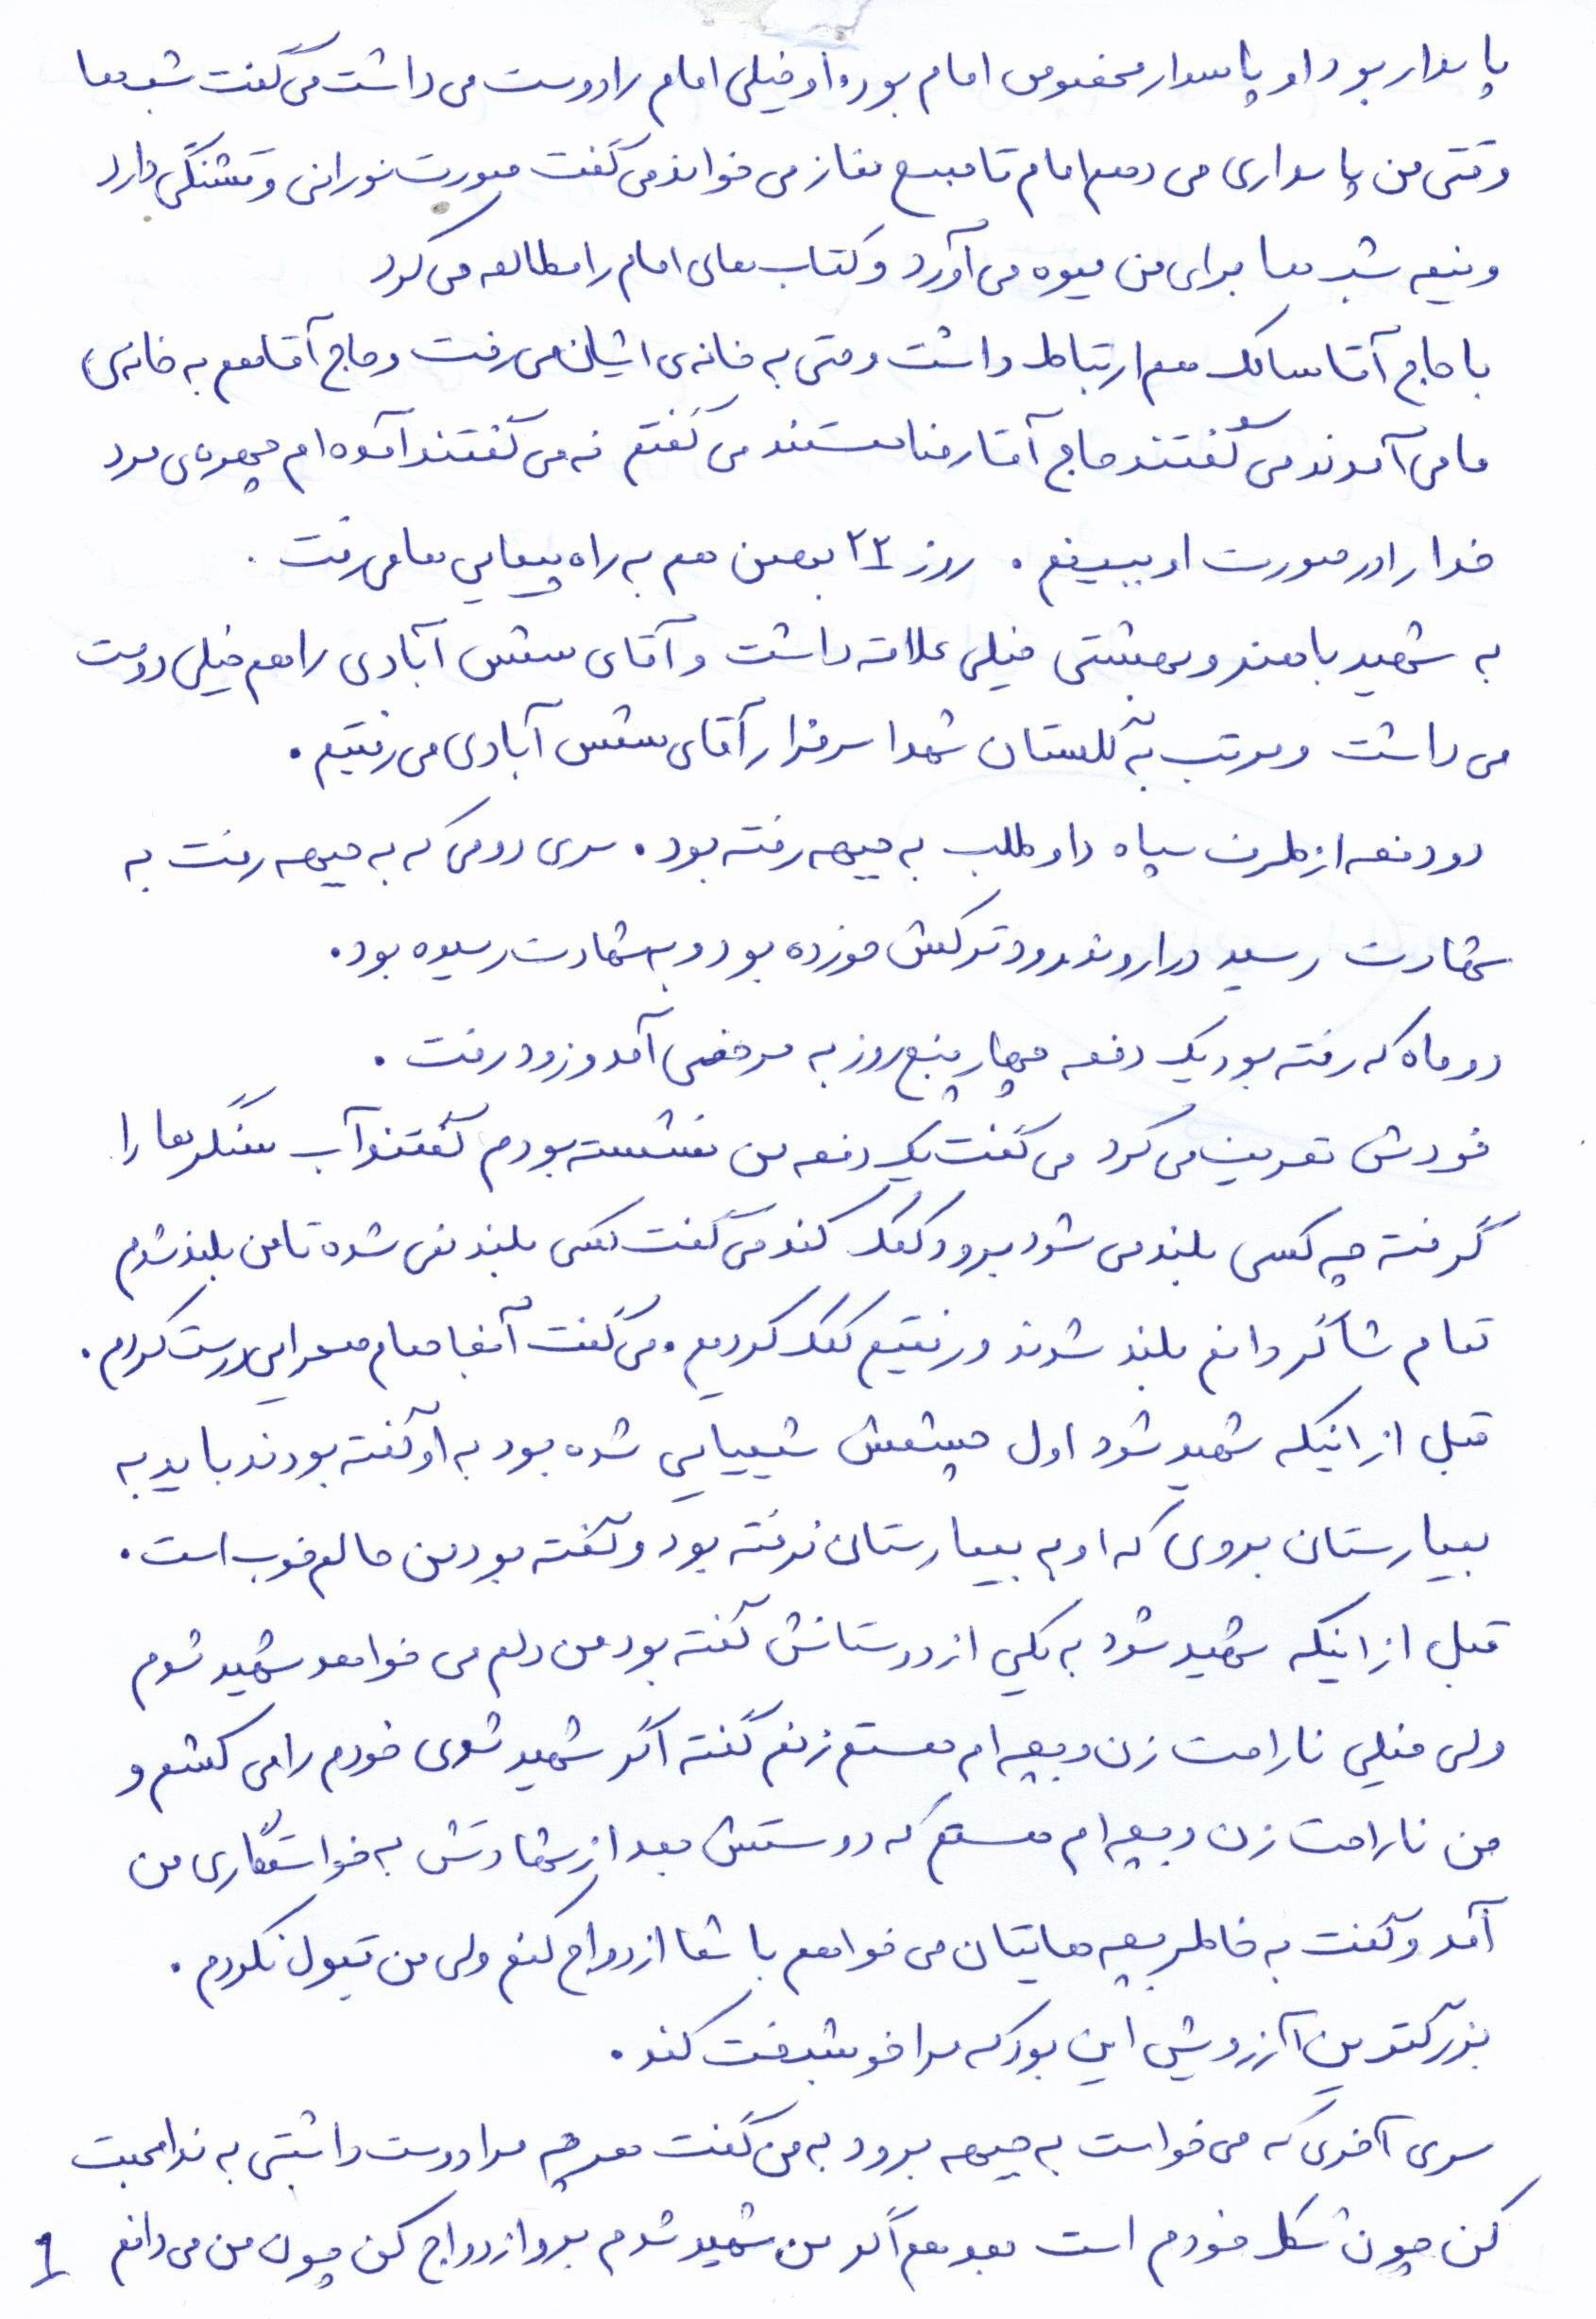 پاسدار بود او پاسدار مخصوص امام بود. او خیلی امام را دوست می داشت می گفت شب ها
وقتی من پاسداری می دهم امام تا صبح نماز می خواند می گفت صورت نورانی و قشنگی دارد
و نیمه شب ها برای من میوه می آورد و کتاب های امام را مطالعه می کرد
با حاج آقا سالک هم ارتباط داشت وحتی به خانه ی ایشان می رفت و حاج آقا هم به خانه ی
ما می آمدند می گفتند حاج آقا رضا هستند می گفتم نه می گفتند آمده ام چهره ی مرد
خدا را در صورت او ببینم . روز ۲۲ بهمن هم به راه پیمایی ها می رفت .
به شهید باهنر و بهشتی خیلی علاقه داشت و آقای شمس آبادی را هم خیلی دوست
می داشت و مرتب به گلستان شهدا سر مزار آقای شمس آبادی می رفتیم .
دو دفعه از طرف سپاه داوطلب به جبهه رفته بود . سری دومی که به جبهه رفت به
شهادت رسید در اروند رود ترکش خورده بود و به شهادت رسیده بود .
دو ماه که رفته بود یک دفعه چهار پنج روز به مرخصی آمد و زود رفت .
خودش تعریف می کرد می گفت یک دفعه من نشسته بودم گفتند آب سنگرها را
گرفته چه کسی بلند می شود برود کمک کند می گفت کسی بلند نمی شده تا من بلند شدم
تمام شاگردانم بلند شدند و رفتیم کمک کردیم . می گفت آنجا حمام صحرایی درست کردم .
قبل از اینکه شهید شود اول چشمش شیمیایی شده بود به او گفته بودند باید به
بیمارستان بروی که او به بیمارستان نرفته بود و گفته بود من حالم خوب است .
قبل از اینکه شهید شود به یکی از دوستانش گفته بود من دلم می خواهد شهید شوم
ولی خیلی ناراحت زن و بچه ام هستم زنم گفته اگر شهید شوی خودم را می کشم و
من ناراحت زن و بچه ام هستم که دوستش بعد از شهادتش به خواستگاری من
آمد و گفت به خاطر بچه هایتان می خواهم با شما ازدواج کنم ولی من قبول نکردم .
بزرگترین آرزویش این بود که مرا خوشبخت کند .
سری آخری که می خواست به جبهه برود به من گفت هرچه مرا دوست داشتی به ندا محبت
کن چون شکل خودم است بعد هم اگر من شهید شدم برو ازدواج کن چون من می دانم